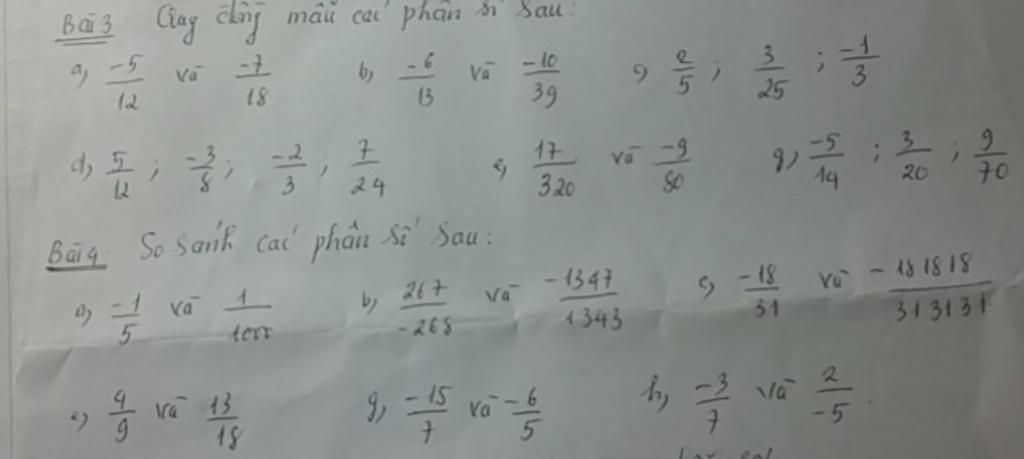 Bài 3 Quy đồng mẫu các phân số sau:
a, -5/12 và -7/18 b, -6/13 và -10/39 c, 2/5 ; 3/25 ; -1/3
d, 5/12 ; -3/8 ; -2/3 ; 7/24 e, 17/320 và -9/80 g, -5/14 ; 3/20 ; 9/70
Bài 4 So sánh các phân số sau:
a, -1/5 và 1/1000 b, 267/-268 và -1347/1343 c, -18/31 và -181818/313131
e, 4/9 và 13/18 g, -15/7 và -6/5 h, -3/7 và 2/-5